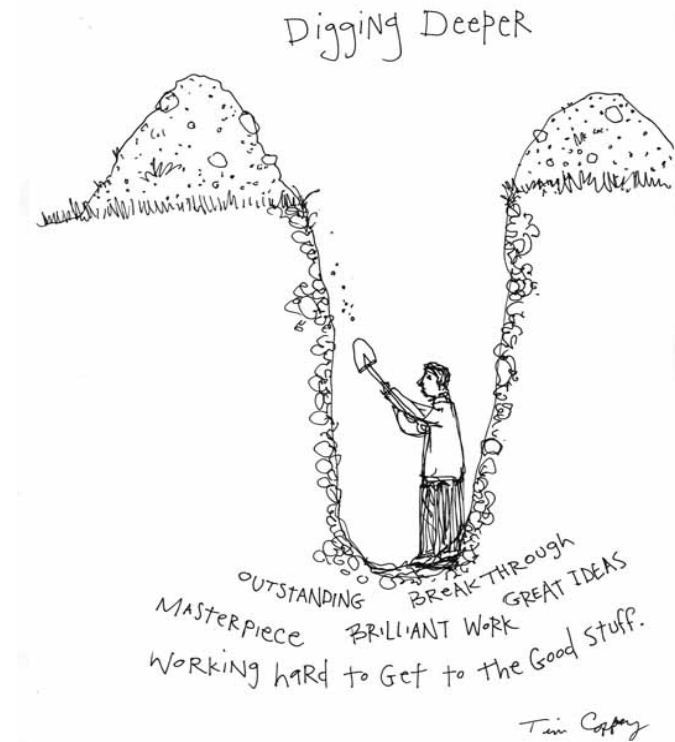 Digging Deeper
OUTSTANDING BREAKTHROUGH
MASTERPIECE BRILLIANT WORK GREAT IDEAS
WORKING hARD to Get to the Good Stuff.
Tim